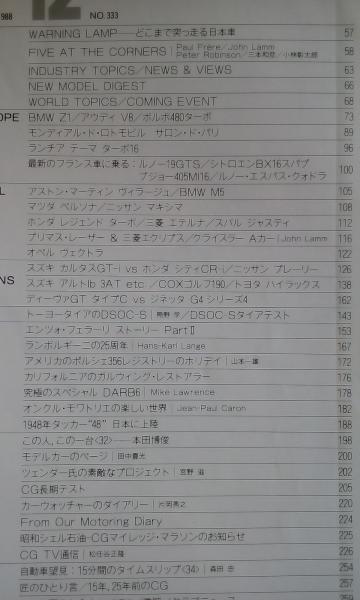 988 12 NO.333
WARNING LAMP──どこまで突っ走る日本車 57
FIVE AT THE CORNERS | Paul Frère/John Lamm Peter Robinson/三本和彦/小林彰太郎 58
INDUSTRY TOPICS/NEWS & VIEWS 63
NEW MODEL DIGEST 66
WORLD TOPICS/COMING EVENT 68
OPE BMW Z1/アウディ V8/ボルボ480ターボ 73
モンディアル・ド・ロトモビル サロン・ド・パリ 89
ランチア テーマ ターボ16 96
最新のフランス車に乗る：ルノー19GTS/シトロエンBX16スパプ
プジョー405MI16/ルノー・エスパス・クォドラ 100
L アストン・マーティン ヴィラージュ/BMW M5 105
マツダ ペルソナ/ニッサン マキシマ 108
ホンダ レジェンド ターボ/三菱 エテルナ/スバル ジャスティ 112
プリマス・レーザー & 三菱エクリプス/クライスラー Aカー | John Lamm 116
オペル ヴェクトラ 122
NS スズキ カルタスGT-i vs ホンダ シティCR-i/ニッサン プレーリー 126
スズキ アルトIb 3AT etc./COXゴルフ190/トヨタ ハイラックス 138
ディーヴァGT タイプC vs ジネッタ G4シリーズ4 162
トーヨータイアのDSOC-S | 熊野 学/DSOC-Sタイアテスト 143
エンツォ・フェラーリ ストーリー PartⅡ 153
ランボルギーニの25周年 | Hans-Karl Lange 167
アメリカのポルシェ356レジストリーのホリデイ | 山本一雄 172
カリフォルニアのガルウィング・レストアラー 176
究極のスペシャル DARB6 | Mike Lawrence 178
オンクル・モワトリエの楽しい世界 | Jean-Paul Caron 182
1948年タッカー“48” 日本に上陸 188
この人、この一台〈32〉──本田博俊 198
モデルカーのページ | 田中農光 200
ツェンダー氏の素敵なプロジェクト | 宮野 滋 202
CG長期テスト 205
カーウォッチャーのダイアリー | 片岡秀之 220
From Our Motoring Diary 224
昭和シェル石油-CGマイレッジ・マラソンのお知らせ 225
CG TV通信 | 松任谷正隆 226
自動車望見：15分間のタイムスリップ〈34〉 | 森田 忠 254
匠のひとり言/15年、25年前のCG 257
259